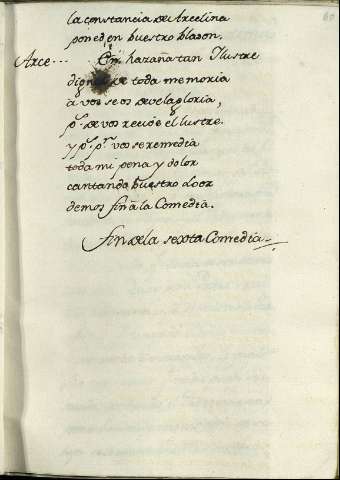 60
la constancia de Arcelina
poned en buestro blason.
Arce... En hazaña tan Ilustre
digna de toda memoria
a vos se os deve la gloria,
pr. de vos recive el lustre.
y pr. pr. vos se remedia
toda mi pena y dolor
cantando buestro loor
demos fin a la Comedia.
fin de la sexta Comedia